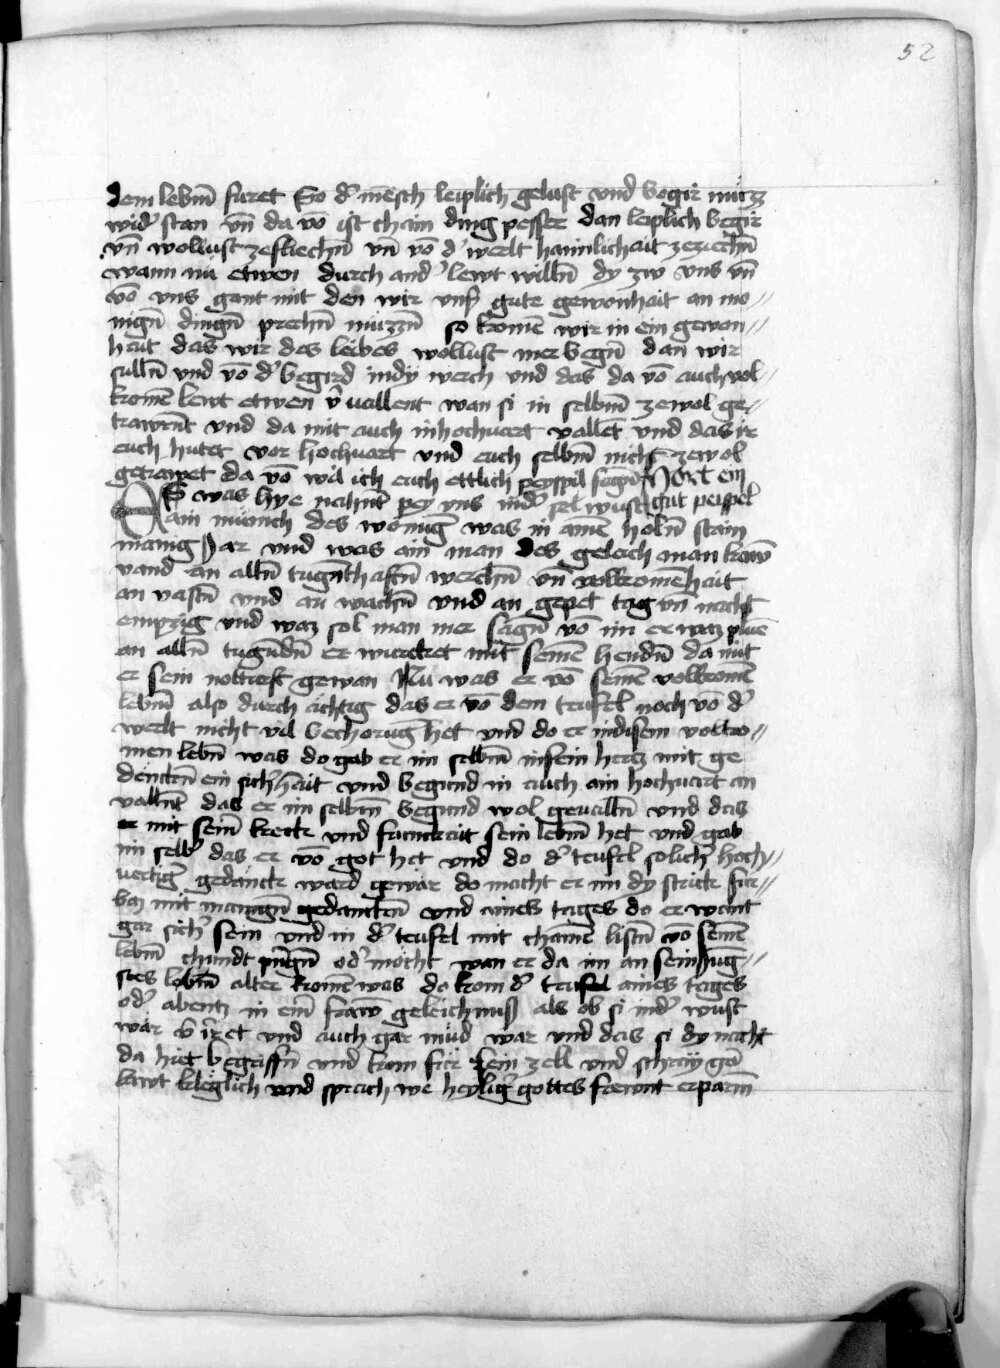 52
dem lebn̄ furet So d' mēsch leiplich gelust vnd begir muzz
wid' stan vn̄ da vō ist chain ding pesser dan leiplich begir
vn̄ wollust zefliechn̄ vn̄ vō d' welt haimlichait zeziechn̄
wann nu etwen durch and' lewt willn̄ dy zw vns vn̄
vō vns gant mit den wir vnß gute gewonhait an me//
nign̄ dingn̄ prechn̄ muzzn̄ so komē wir in ein gewon//
hait das wir des leibes wollust mer begn̄ dan wir
sulln̄ vnd vō d' begird indy werch vnd das da vō auch vol//
komē lewt etwen v̄uallent wan si in selbm̄ zewol ge//
trawent vnd da mit auch inhochuart vallet vnd das ir
euch hutet vor hochuart vnd euch selbm̄ nicht zewol
getrawet da vō wil ich euch ettlich peyspil sagn̄ Hort ein
gut peispel
ES was hye nahnt pey vns ind' sel wust
ain munch des wonūg was in ainē holn̄ stain
manig Jar vnd was ain man des geleich man kawm̄
vand an alln̄ tugnthaftn̄ werchn̄ vn̄ volkomēhait
an vastn̄ vnd an wachn̄ vnd an gepet tag vn̄ nacht
empzig vnd waz sol man mer sagn̄ vō im er waz
an alln̄ tugndn̄ er wurcket mit seinē hendn̄ da mit
er sein notturft gewan Nu was er vō seinē volkomē
lebn̄ also durch āchtig das er vō dem teufel noch vō d'
werlt nicht vil bechorūg het vnd do er indisem volko//
men lebn̄ was do gab er im selbm̄ insein hertz mit ge
denckn̄ ein sich'hait vnd begund in auch ain hochuart an
valln̄ das er im selbm̄ begund wol geualln̄ vnd das
er mit seinē kreck vnd frumckait sein lebn̄ het vnd gab
im selb' das er vō got het vnd do d' teufel solich' hoch//
uertig' gedanck ward gewar do macht er im dy strick fur//
baz mit manign̄ gedanckn̄ vnd aines tages do er want
gar sich' sein vnd in d' teufel mit chainē listn̄ vō seinē
lebn̄ chundt pringn̄ od' mocht wan er da im an sein Jug//
stes lebn̄ alter komē was do kom d' teufel aines tages
od' abentz in ein̄ frawn̄ geleichnuß als ob si ind' wust
wār v̄irret vnd auch gar mūd war vnd das si dy nacht
da hiet begriffn̄ vnd kom fur sein zell vnd schray gar
lawt klēglich vnd sprach we heylig' gottes frewnt erparm̄